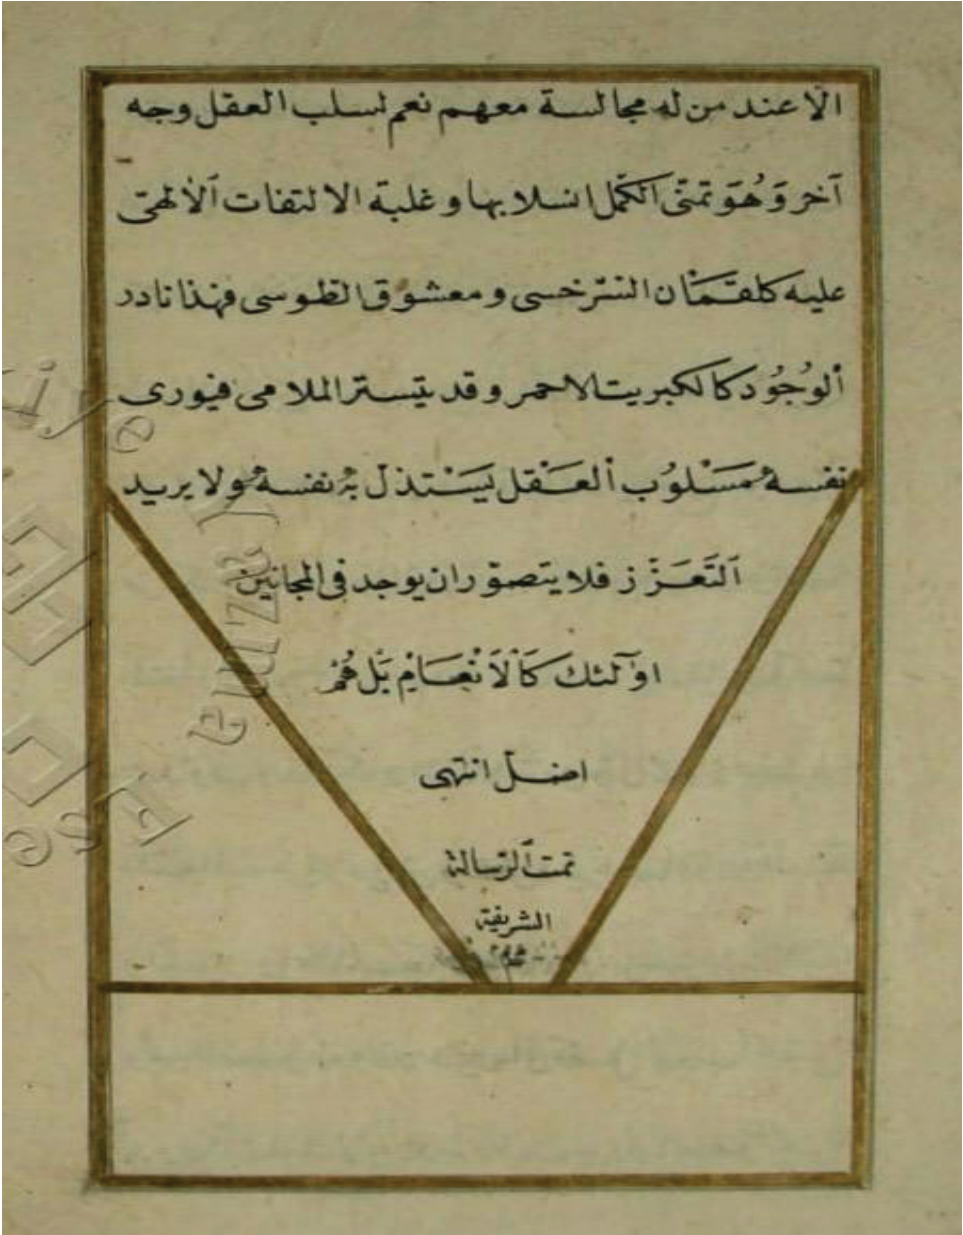 الّا عند من له مجالسة معهم نعم لسلب العقل وجه
آخر وَهُوَ تمنّى الكمّل انسلابها و غلبة الالتفات الالهى
عليه كلقمَان السّرخسى و معشوق الطوسى فهذا نادر
الوجُود كالكبريت الاحمر و قد يتستر الملامى فيورى
نفسه مَسْلوُب العَقل يَسْتذل به نفسه و لا يريد
التَعَزّز فلا يتصوّر ان يوجد فى المجانين
اولئك كَالاَنْعَامِ بَل هُمْ
اضل انتهى
تمت الرّسالة
الشريفة
Yazma Eserler